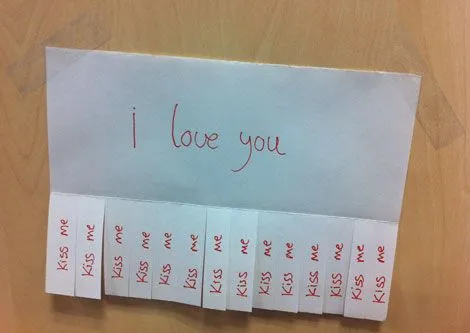 i love you
Kiss me
Kiss me
Kiss me
Kiss me
Kiss me
Kiss me
Kiss me
Kiss me
Kiss me
Kiss me
Kiss me
Kiss me
Kiss me
Kiss me